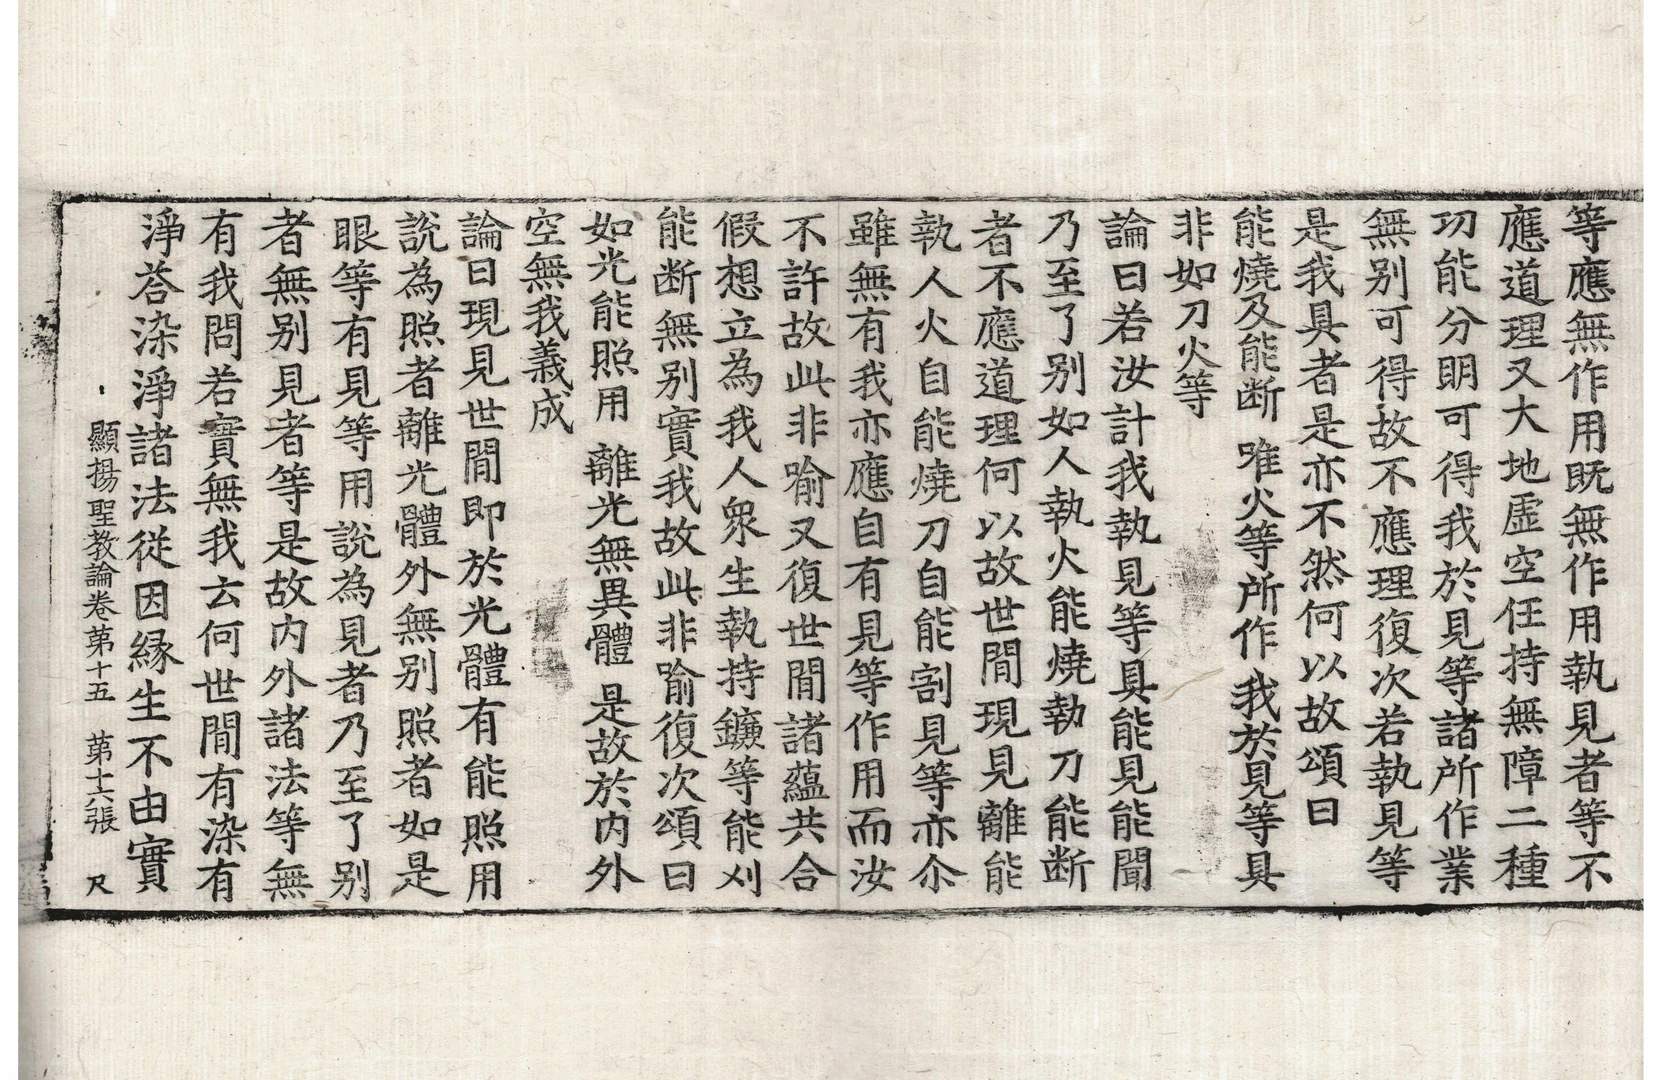 等應無作用旣無作用執見者等不
應道理又大地虛空任持無障二種
功能分明可得我於見等諸所作業
無別可得故不應理復次若執見等
是我具者是亦不然何以故頌曰
能燒及能断 唯火等所作 我於見等具
非如刀火等
論曰若汝計我執見等具能見能聞
乃至了別如人執火能燒執刀能断
者不應道理何以故世閒現見離能
執人火自能燒刀自能割見等亦尒
雖無有我亦應自有見等作用而汝
不許故此非喻又復世閒諸蘊共合
假想立為我人衆生執持鑛等能刈
能断無別實我故此非喻復次頌曰
如光能照用 離光無異體 是故於內外
空無我義成
論曰現見世閒即於光體有能照用
說為照者離光體外無別照者如是
眼等有見等用說為見者乃至了別
者無別見者等是故內外諸法等無
有我問若實無我云何世閒有染有
淨荅染淨諸法從因緣生不由實
顯揚聖教論卷第十五 第十六張 尺